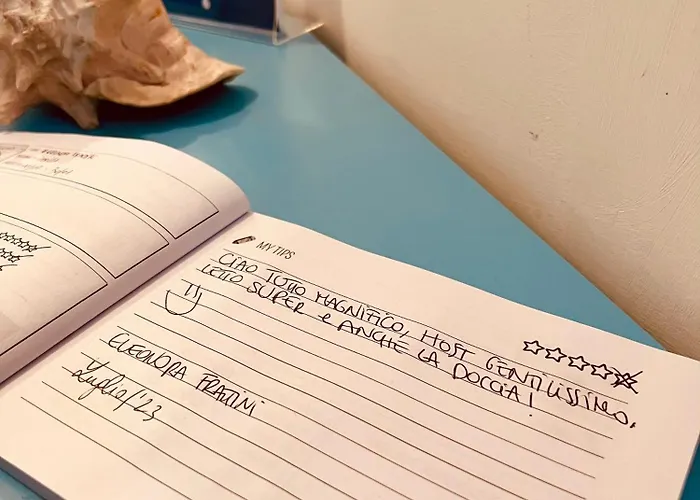 MY TIPS
CIAO TUTTO MAGNIFICO, HOST GENTILISSIMO,
LETTO SUPER e ANCHE LA DOCCIA!
ELEONORA FRATINI
Luglio/'23